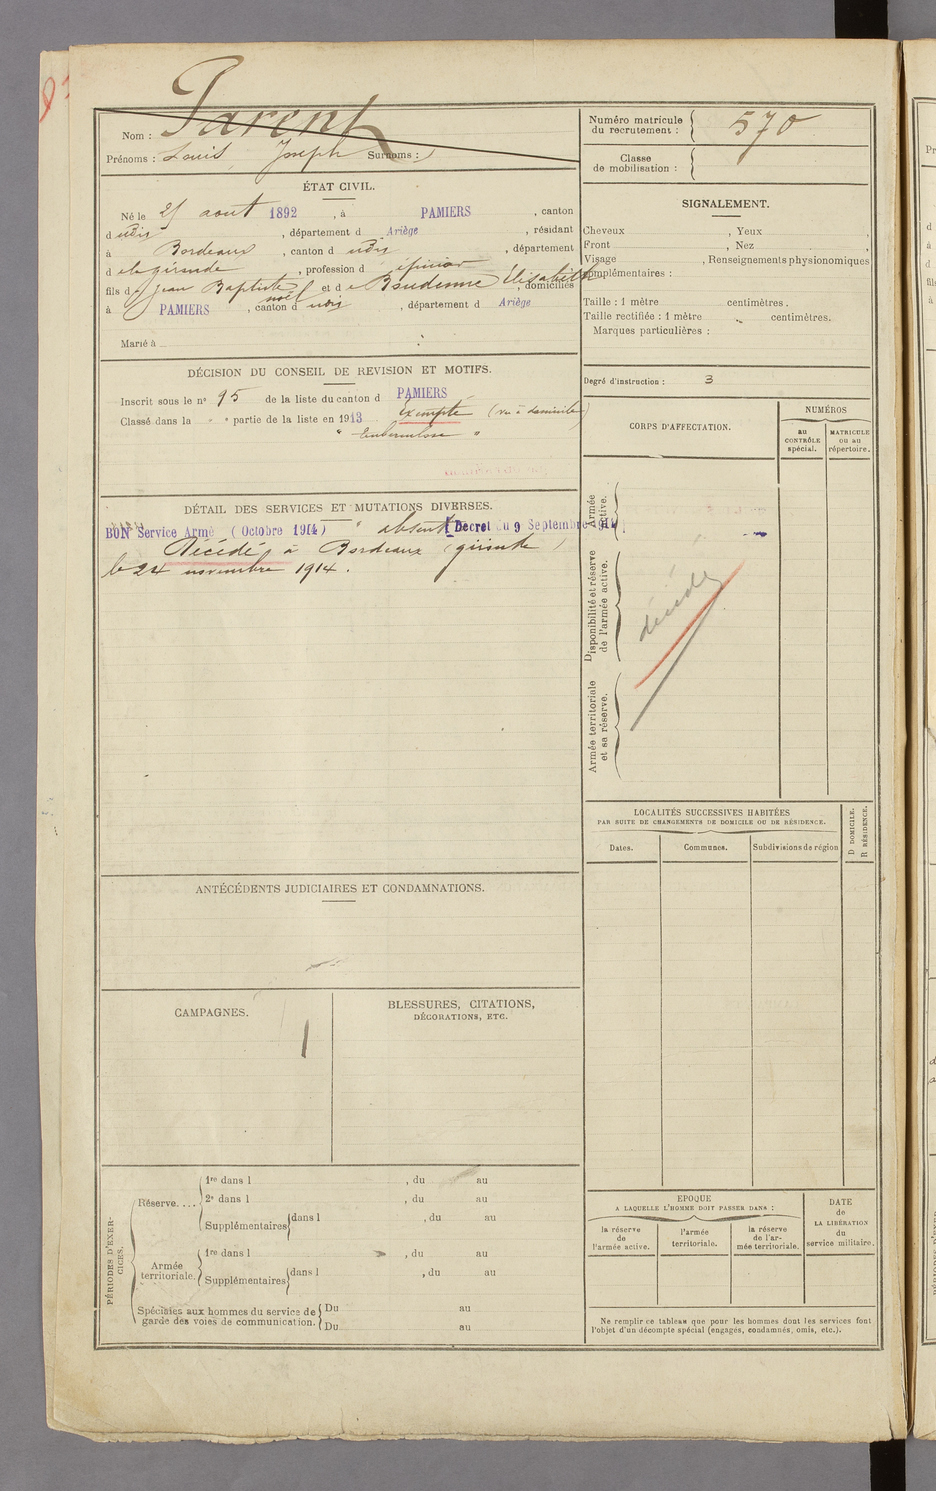 Nom : Parent
Prénoms : Louis Joseph Surnoms :
Numéro matricule du recrutement : 570
Classe de mobilisation :
ÉTAT CIVIL.
Né le août 1892, à PAMIERS, canton
d udis, département d Ariège, résidant
à Bordeaux, canton d udis, département
d e la gironde, profession d épicier
fils d e Jean Baptiste noël et d e Élisabeth, domiciliés
à PAMIERS, canton d udis, département d Ariège
Marié à
SIGNALEMENT.
Cheveux , Yeux ,
Front , Nez ,
Visage , Renseignements physionomiques
complémentaires :
Taille : 1 mètre centimètres.
Taille rectifiée : 1 mètre centimètres.
Marques particulières :
Degré d'instruction : 3
DÉCISION DU CONSEIL DE REVISION ET MOTIFS.
Inscrit sous le n° 95 de la liste du canton d PAMIERS
Classé dans la " partie de la liste en 1913 Exempté (vu à domicile)
" tuberculose "
CORPS D'AFFECTATION.
NUMÉROS
au CONTRÔLE spécial.
MATRICULE ou au répertoire.
Armée active.
Disponibilité et réserve de l'armée active.
Armée territoriale et sa réserve.
décédé
DÉTAIL DES SERVICES ET MUTATIONS DIVERSES.
BON Service Armé (Octobre 1914) " absent (Décret du 9 Septembre 1914)
Décédé à Bordeaux (gironde)
le 24 novembre 1914.
LOCALITÉS SUCCESSIVES HABITÉES
PAR SUITE DE CHANGEMENTS DE DOMICILE OU DE RÉSIDENCE.
Dates. Communes. Subdivisions de région
D DOMICILE.
R RÉSIDENCE.
ANTÉCÉDENTS JUDICIAIRES ET CONDAMNATIONS.
CAMPAGNES.
BLESSURES, CITATIONS,
DÉCORATIONS, ETC.
PÉRIODES D'EXERCICES.
Réserve....
1re dans l , du au
2e dans l , du au
Supplémentaires dans l , du au
Armée territoriale.
1re dans l , du au
Supplémentaires dans l , du au
Spéciales aux hommes du service de
garde des voies de communication.
Du au
Du au
EPOQUE
A LAQUELLE L'HOMME DOIT PASSER DANS :
la réserve de l'armée active.
l'armée territoriale.
la réserve de l'armée territoriale.
DATE de LA LIBÉRATION du service militaire.
Ne remplir ce tableau que pour les hommes dont les services font
l'objet d'un décompte spécial (engagés, condamnés, omis, etc.).